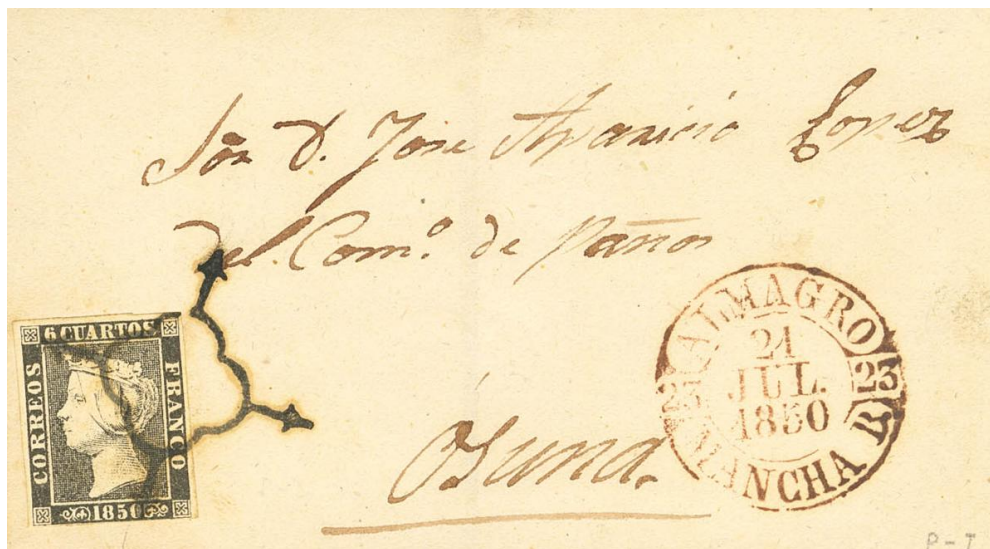 Sor. D. Jose Aparicio Lopez
del Com.º de Paños
Osuna.
6 CUARTOS
CORREOS
FRANCO
1850
ALMAGRO
21
JUL.
1850
23
MANCHA
P-7